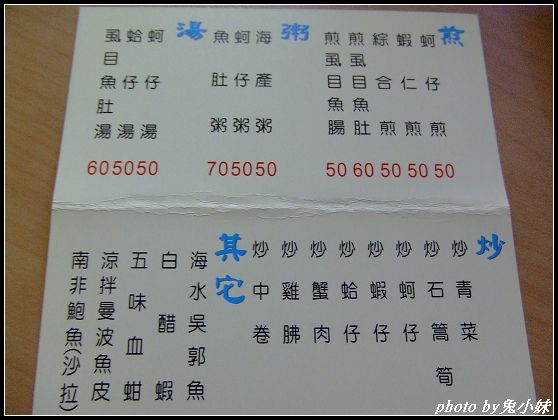 煎
蚵仔煎 50
蝦仁煎 50
綜合煎 50
煎虱目魚肚 60
煎虱目魚腸 50
粥
海產粥 50
蚵仔粥 50
魚肚粥 70
湯
蚵仔湯 50
蛤仔湯 50
虱目魚肚湯 60
炒
炒青菜
炒石篙筍
炒蚵仔
炒蝦仔
炒蛤仔
炒蟹肉
炒雞胇
炒中卷
其它
海水吳郭魚
白醋蝦
五味血蚶
涼拌曼波魚皮
南非鮑魚(沙拉)
photo by兔小妹